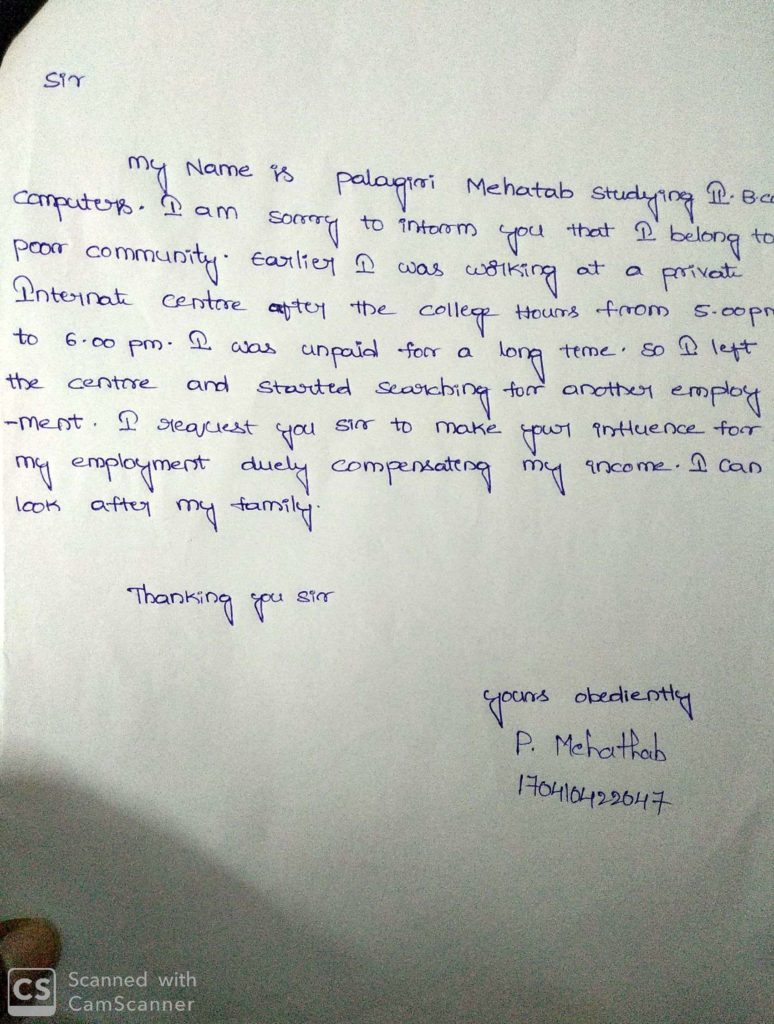 Sir
My Name is palagiri Mehatab studying II. B.co
computers. I am sorry to inform you that I belong to
poor community. Earlier I was working at a private
Internate centre after the college Hours from 5.00pm
to 6.00 pm. I was unpaid for a long teme. so I left
the centre and started searching for another employ
-ment. I request you sir to make your influence for
my employment duely compensateng my income. I can
look after my family.
Thanking you sir
yours obediently
P. Mehathab
170410422047
CS Scanned with
CamScanner